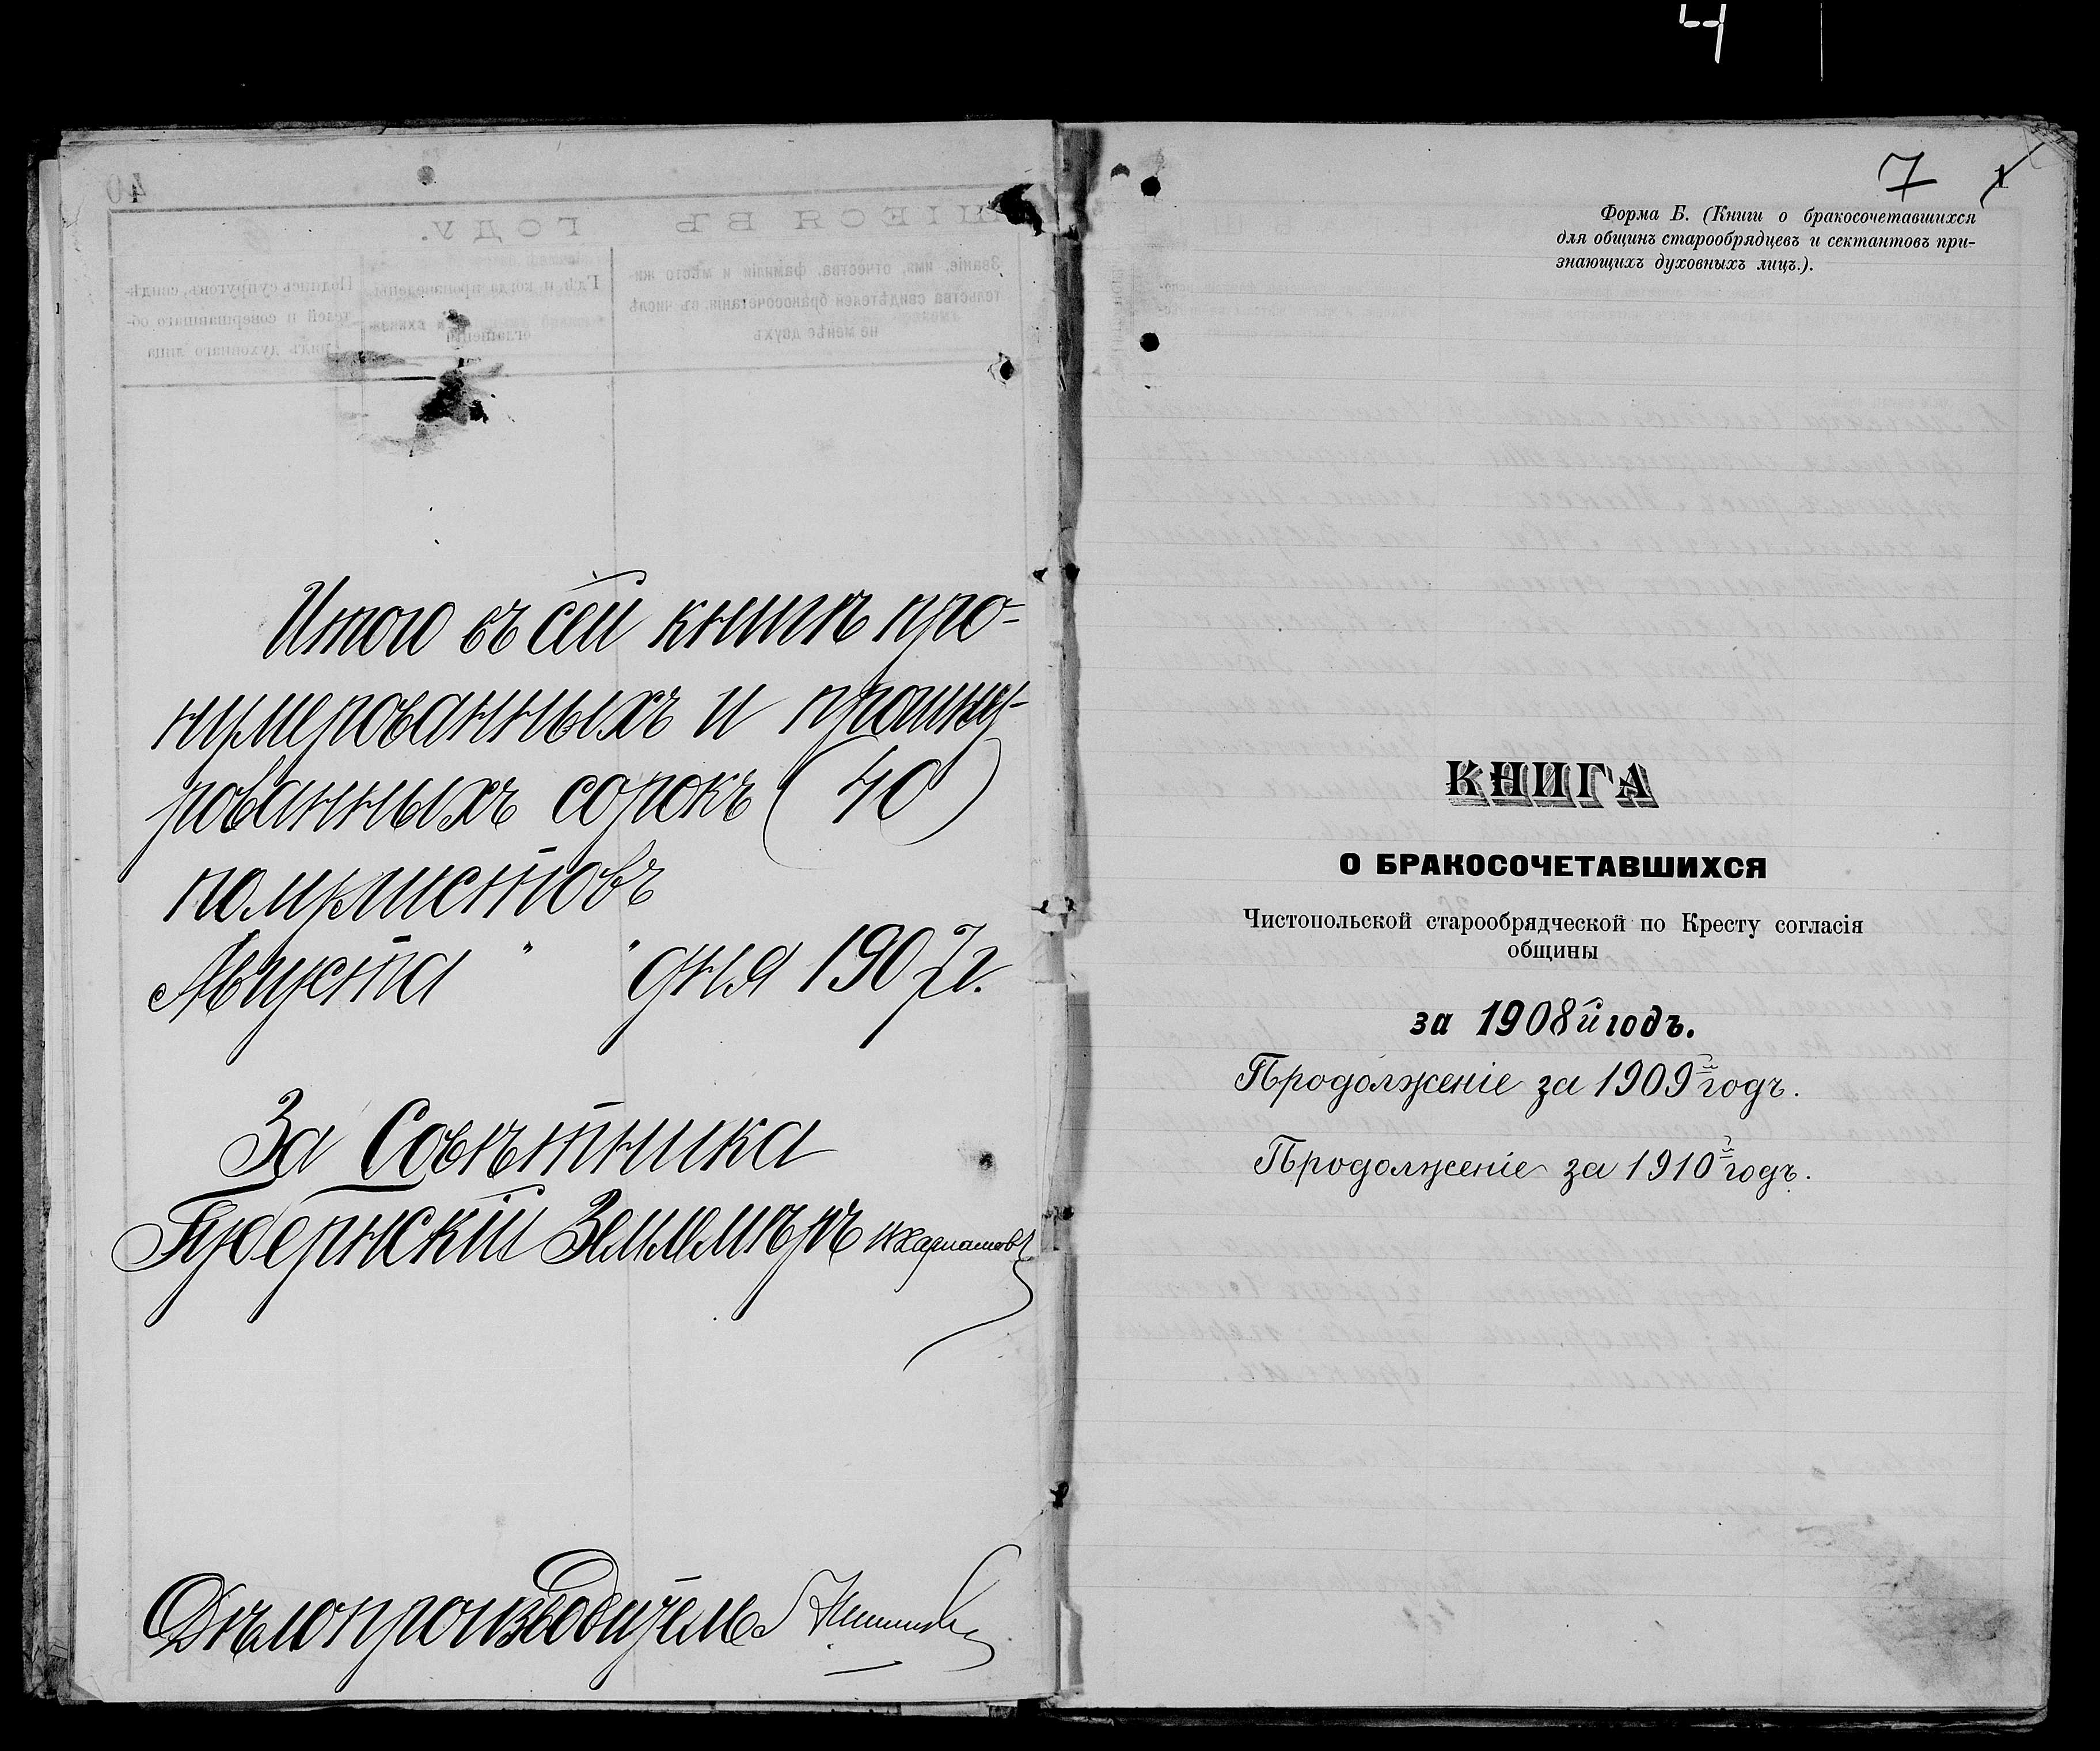 Итого въ сей книгѣ про-
нумерованныхъ и прошну-
рованныхъ сорокъ (40)
полулистовъ
Августа " " дня 1907 г.
За Совѣтника
Губернскій Землемѣръ
Дѣлопроизводитель
7 1
Форма Б. (Книги о бракосочетавшихся
для общинъ старообрядцевъ и сектантовъ при-
знающихъ духовныхъ лицъ.).
КНИГА
О БРАКОСОЧЕТАВШИХСЯ
Чистопольской старообрядческой по Кресту согласія
общины
за 1908й годъ.
Продолженіе за 1909й годъ.
Продолженіе за 1910й годъ.